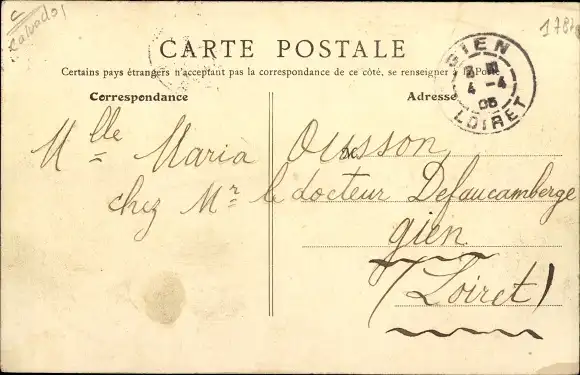 Calvados
1787
CARTE POSTALE
Certains pays étrangers n'acceptant pas la correspondance de ce côté, se renseigner à la Poste
Correspondance
Adresse
GIEN
4 -4
05
LOIRET
Mlle Maria Ousson,
chez Mr le docteur Defaucamberge
gien
(Loiret)